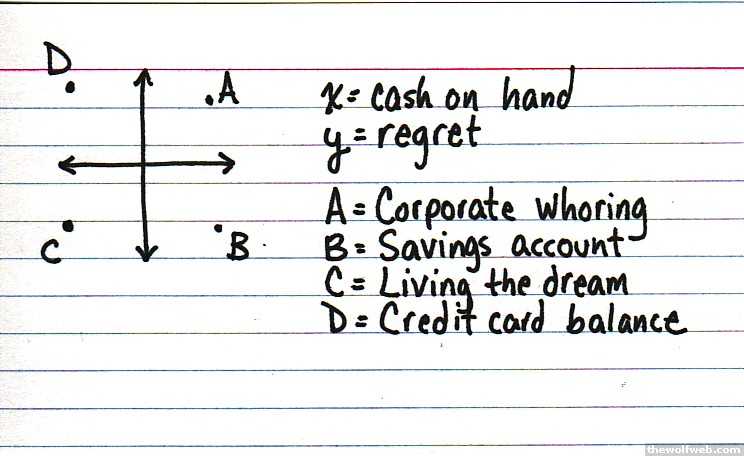 D
A
C
B
x = cash on hand
y = regret
A = Corporate Whoring
B = Savings account
C = Living the dream
D = Credit card balance
thewolfweb.com